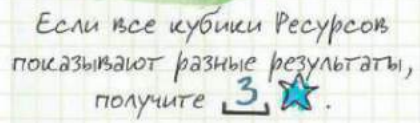 Если все кубики Ресурсов
показывают разные результаты,
получите 3 .